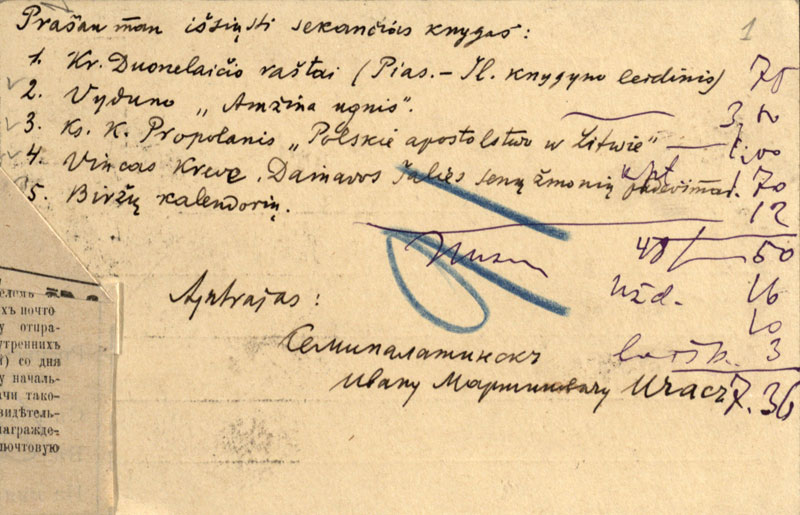 1
Prašau man išsiųsti sekančias knygas:
1. Kr. Duonelaičio raštai (Pias.-Il. knygyno leidinis) 75
2. Vyduno „Amžina ugnis".
3. Ks. K. Propolanis „Polskie apostolstwo w Litwie" — 1,00
4. Vincas Kreve. Dainavos šalies senų žmonių 70
5. Biržų kalendorių. 12
48 50
Užd. 16
Antrašas: 10
Семипалатинскъ 3
Ивану Мартиновичу 7.36
елемъ
ихъ почто
у отпра-
утреннихъ
) со дня
у началь-
ачи тако-
видѣтель-
награжде-
почтовую